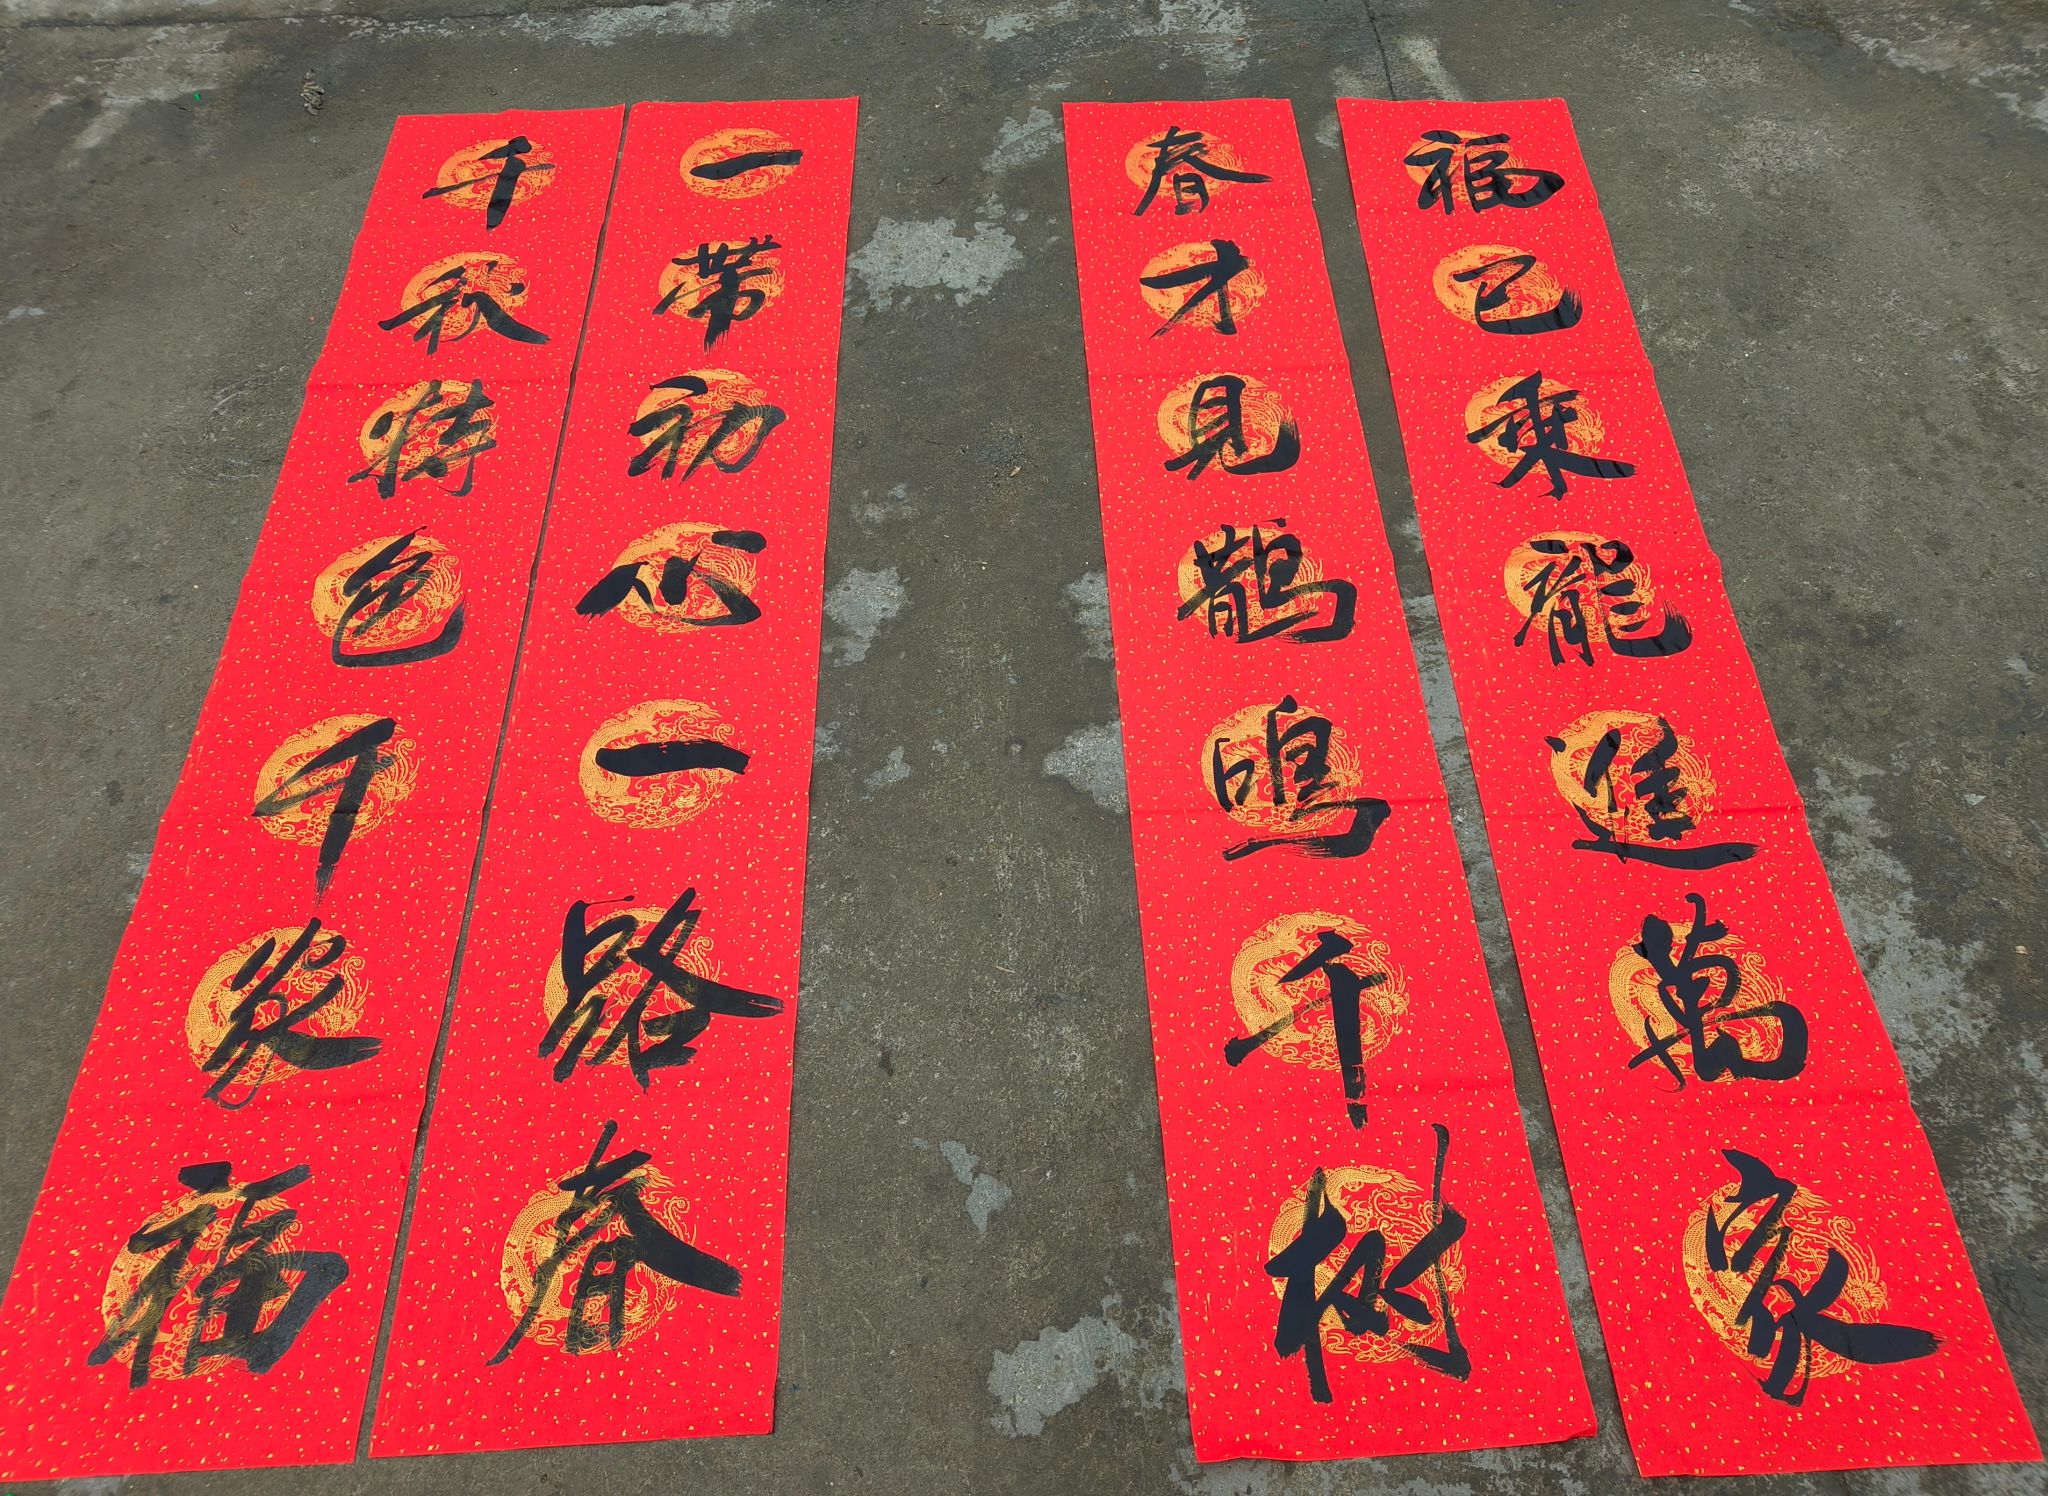 福已乘龍進萬家
春才見鵲鳴千树
一带初心一路春
千秋特色千家福